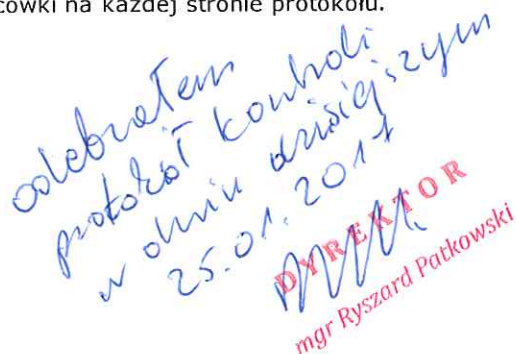 cówki na każdej stronie protokołu.
odebrałem
protokół kontroli
w dniu dzisiejszym
25.01.2017
DYREKTOR
mgr Ryszard Patkowski